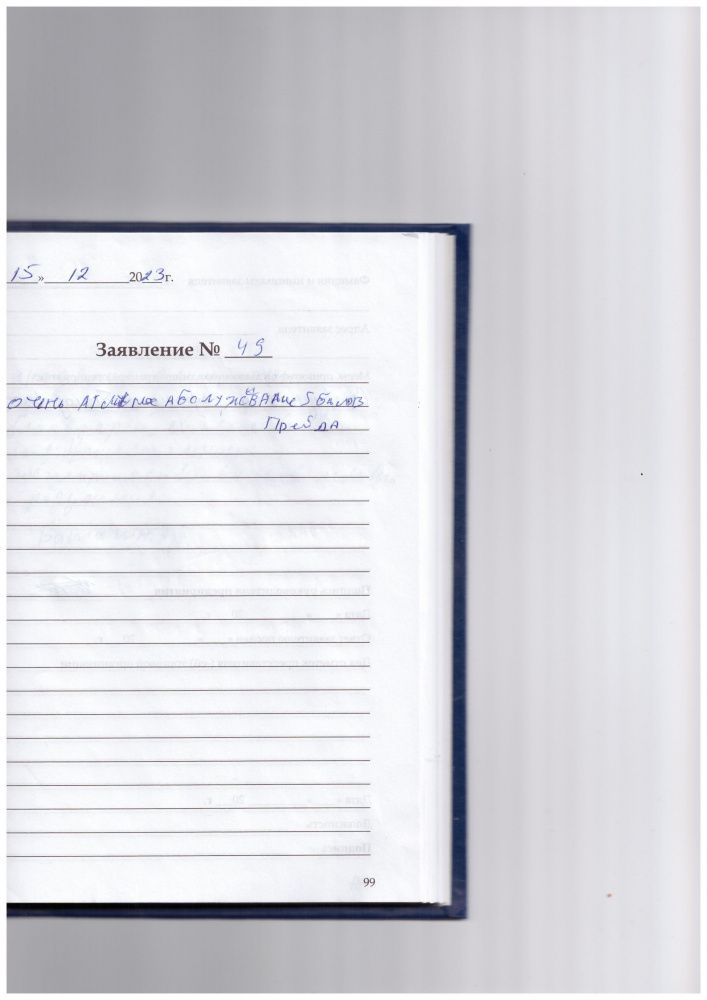 15 » 12 2023 г.
Заявление № 49
очень АТличное АБолуЖЫВАНие 5 Балов
ПрейдА
99